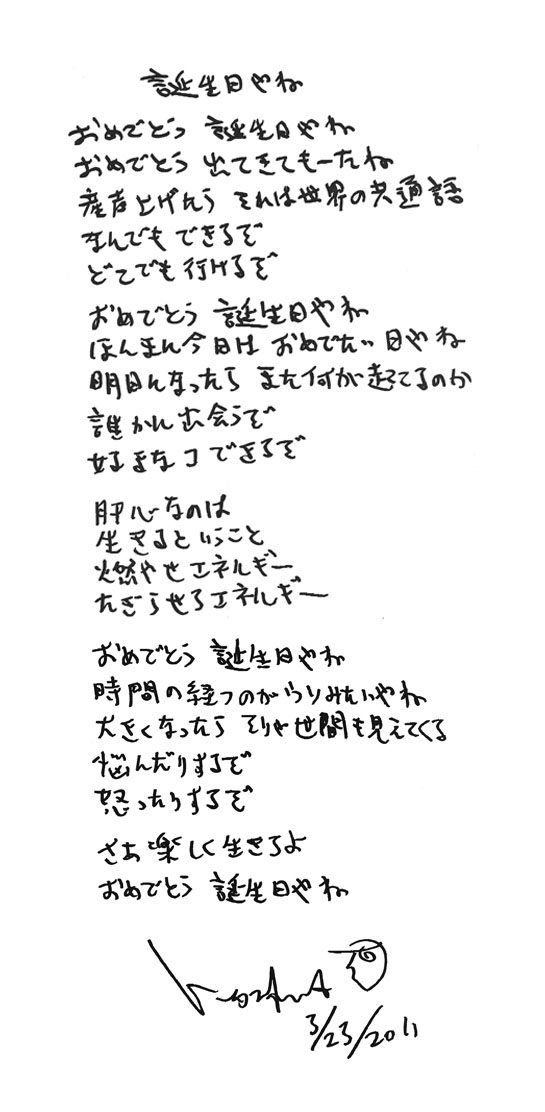 誕生日やね
おめでとう 誕生日やね
おめでとう 出てきてもーたね
産声上げたら それは世界の共通語
なんでも できるぞ
どこでも 行けるぞ
おめでとう 誕生日やね
ほんまん今日は おめでたい日やね
明日んなったら また何が起てるのか
誰かん出会うぞ
好きなコできるぞ
肝心なのは
生きるということ
燃やせエネルギー
たぎらせろエネルギー
おめでとう 誕生日やね
時間の経つのがウソみたいやね
大きくなったら そりゃ世間も見えてくる
悩んだりするぞ
怒ったりするぞ
さあ 楽しく生きろよ
おめでとう 誕生日やね
3/23/2011